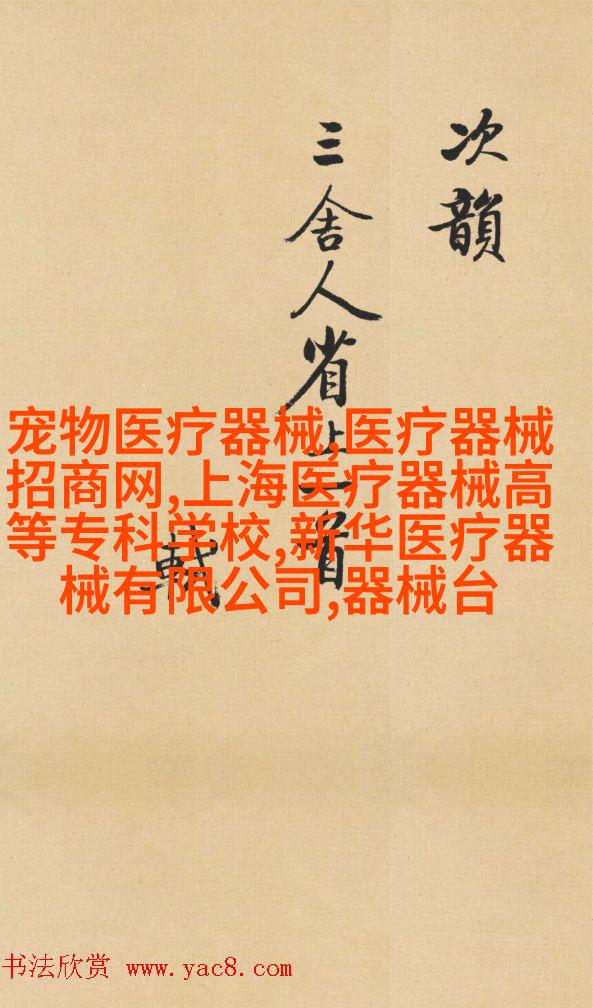 次韻
三舍人省上一首
軾
宠物医疗器械,医疗器械
招商网,上海医疗器械高
等专科学校,新华医疗器
械有限公司,器械台
书法欣赏 www.yac8.com